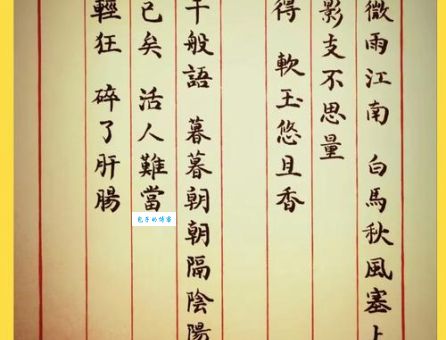 微雨江南 白馬秋風塞上
影支不思量
得 軟玉悠且香
千般語 暮暮朝朝隔陰陽
已矣 活人難當
輕狂 碎了肝腸